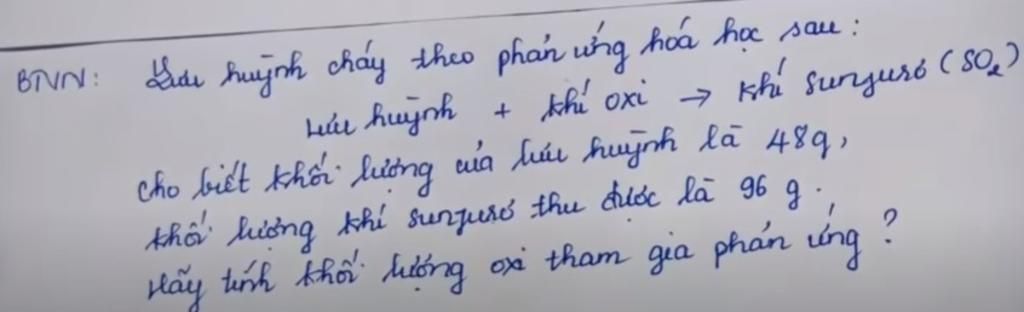 BTVN: Lưu huỳnh cháy theo phản ứng hóa học sau:
Lưu huỳnh + khí oxi → khí sunfurơ (SO₂)
cho biết khối lượng của lưu huỳnh là 48g,
khối lượng khí sunfurơ thu được là 96 g.
Hãy tính khối lượng oxi tham gia phản ứng?